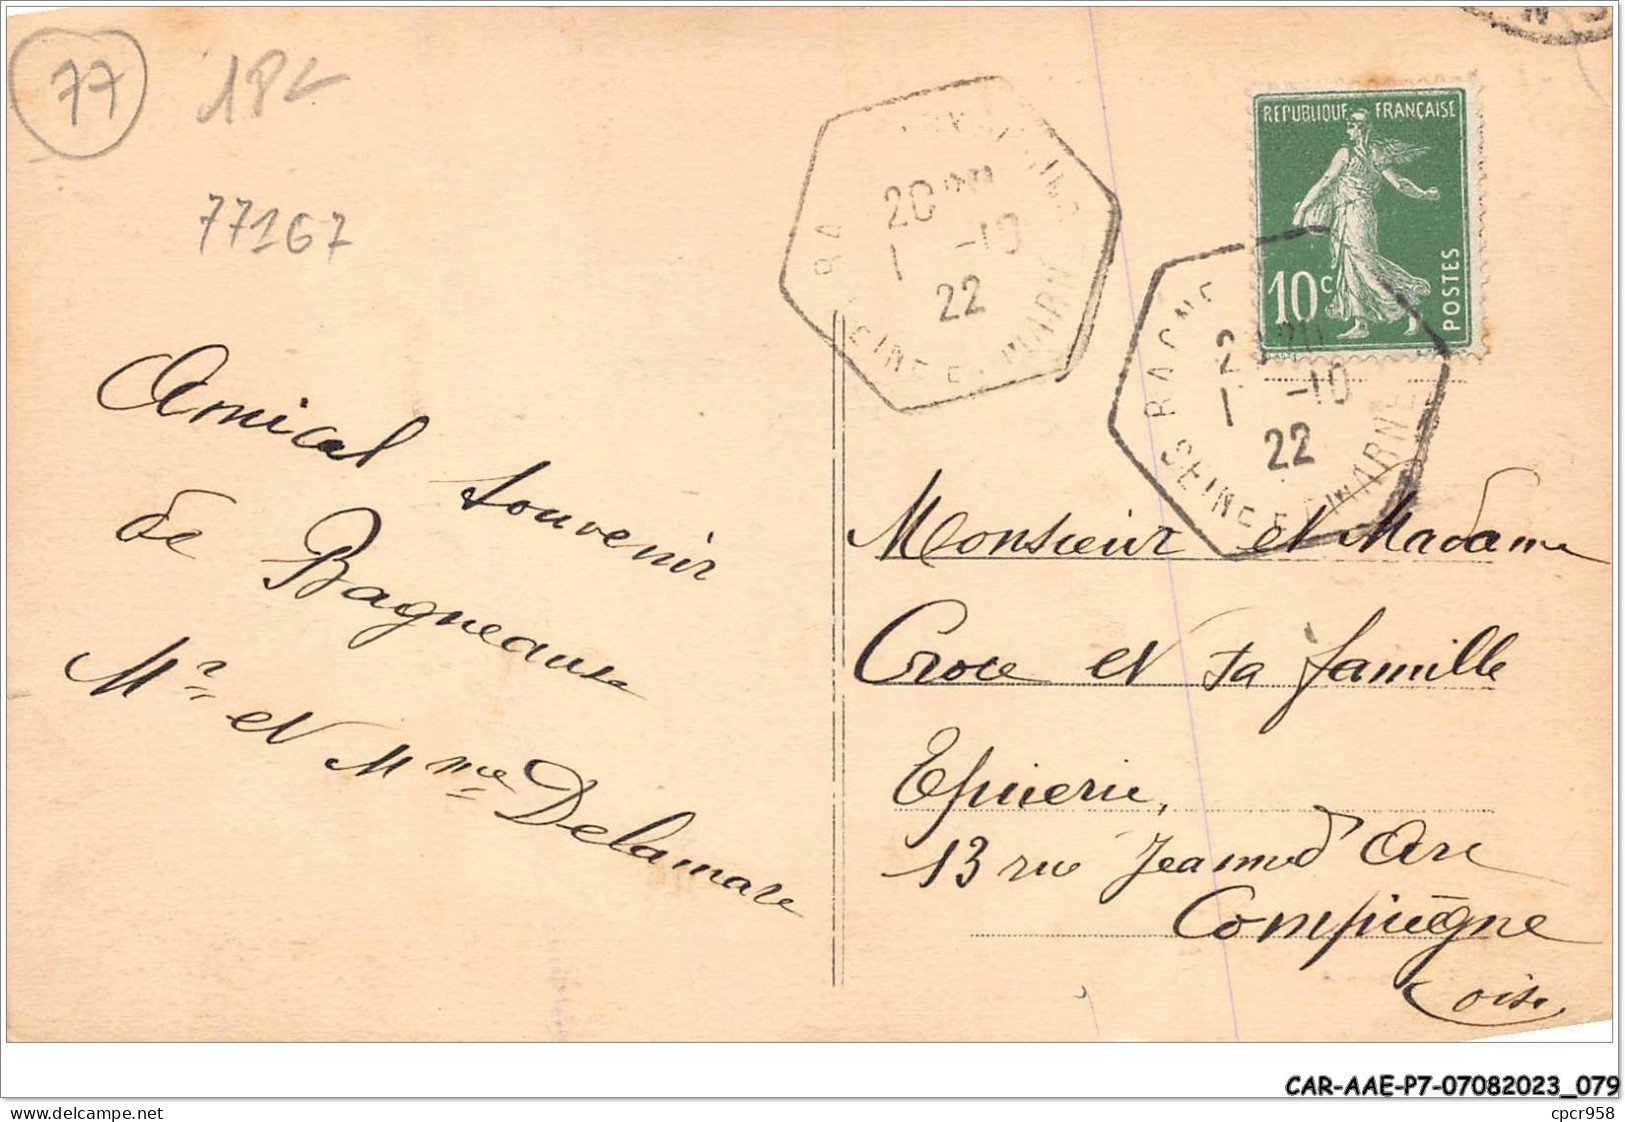 77
18L
77167
REPUBLIQUE FRANÇAISE
10c
POSTES
20
1 -10
22
SEINE ET MARNE
BAGNE
1 -10
22
SEINE ET MARNE
Amical souvenir
de Bagneaux
Mr et Mme Delamare
Monsieur et Madame
Croce et sa famille
Epicerie,
13 rue Jeanne d'Arc
Compiègne
Oise
CAR-AAE-P7-07082023_079
www.delcampe.net
cpcr958